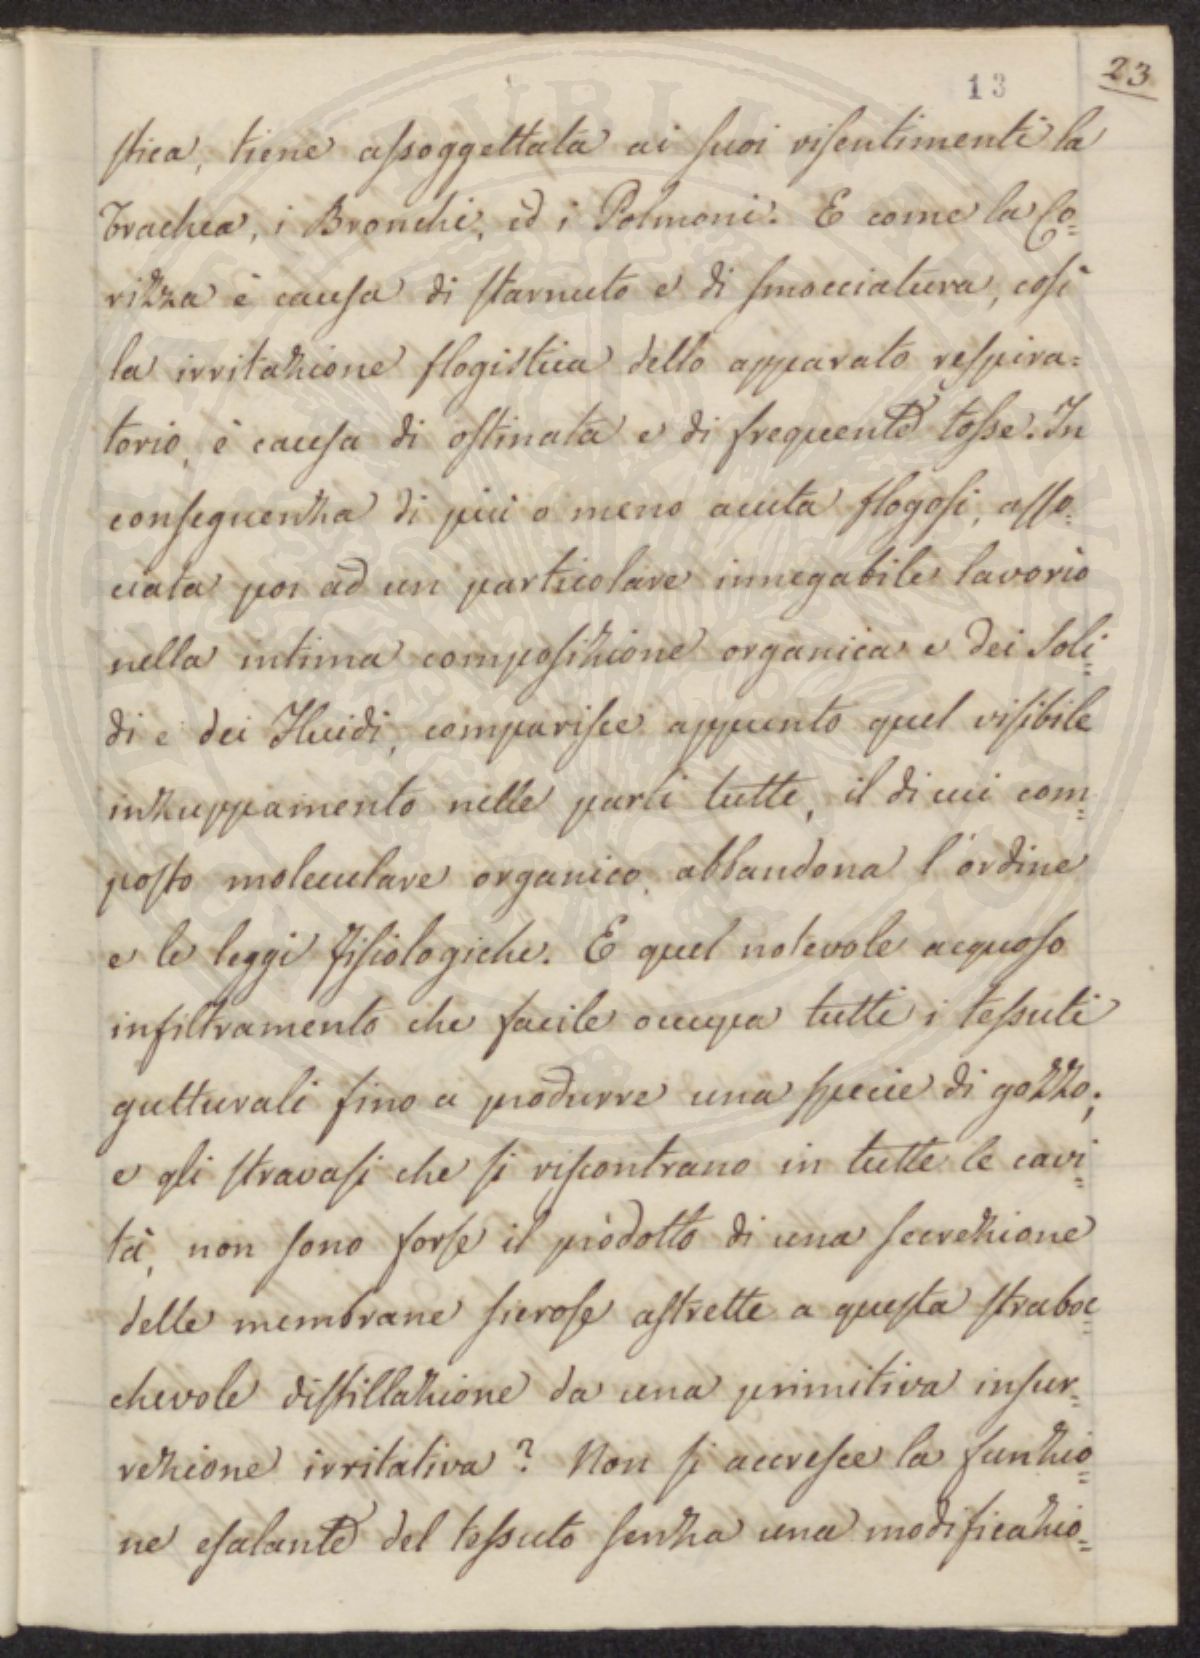 13
23
stica, tiene assoggettata ai suoi risentimenti la
Trachea, i Bronchi, ed i Polmoni. E come la Co=
rizza è causa di starnuto e di smocciatura, così
la irritazione flogistica dello apparato respira=
torio, è causa di ostinata e di frequente tosse. In
conseguenza di più o meno acuta flogosi, asso=
ciata poi ad un particolare innegabile lavorio
nella intima composizione organica e dei Soli=
di e dei Fluidi, comparisce appunto quel visibile
inzuppamento nelle parti tutte, il di cui com=
posto moleculare organico, abbandona l'ordine
e le leggi fisiologiche. E quel notevole acquoso
infiltramento che facile occupa tutti i tessuti
gutturali fino a produrre una specie di gozzo;
e gli stravasi che si riscontrano in tutte le cavi=
tà, non sono forse il prodotto di una secrezione
delle membrane sierose astrette a questa straboc=
chevole distillazione da una primitiva insur=
rezione irritativa? Non si accresce la funzio=
ne esalante del tessuto senza una modificazio=